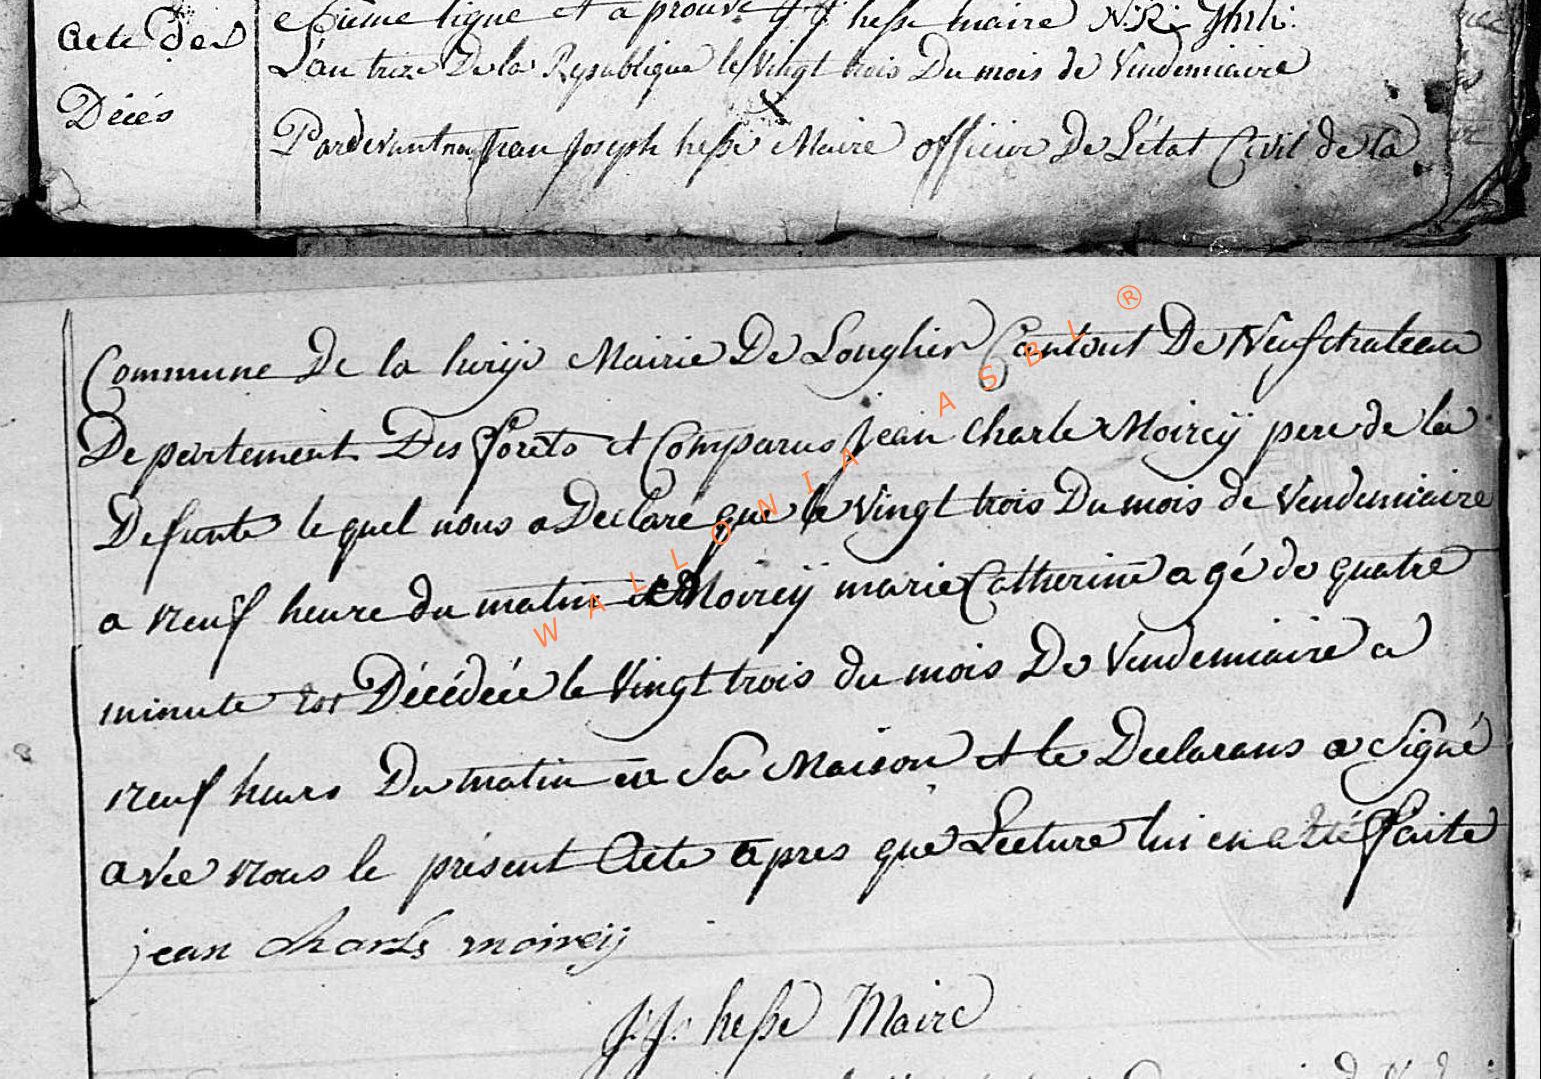 ligne et aprouvé J J hesse maire
Acte Des
L'an treize De la Republique le Vingt trois Du mois de Vendemiaire
Décés
Pardevant nous Jean Joseph hesse Maire officier De L'état Civil de la
Commune De la Mairie De Longlier Cantont De Neufchateau
Departement Des forêts et Comparus Jean Charle Moireÿ pere de la
Defunte le quel nous a Declare que le Vingt trois Du mois de Vendemiaire
a neuf heure du matin Moireÿ marie Catherine agé de quatre
minute est Décédéé le Vingt trois du mois De Vendemiaire a
neuf heurs Du matin en Sa Maison et le Declarans a Signé
avec nous le présent Acte apres que Lecture lui en a été faite
jean charles moireÿ
J. J. hesse Maire
WALLONIA ASBL ®